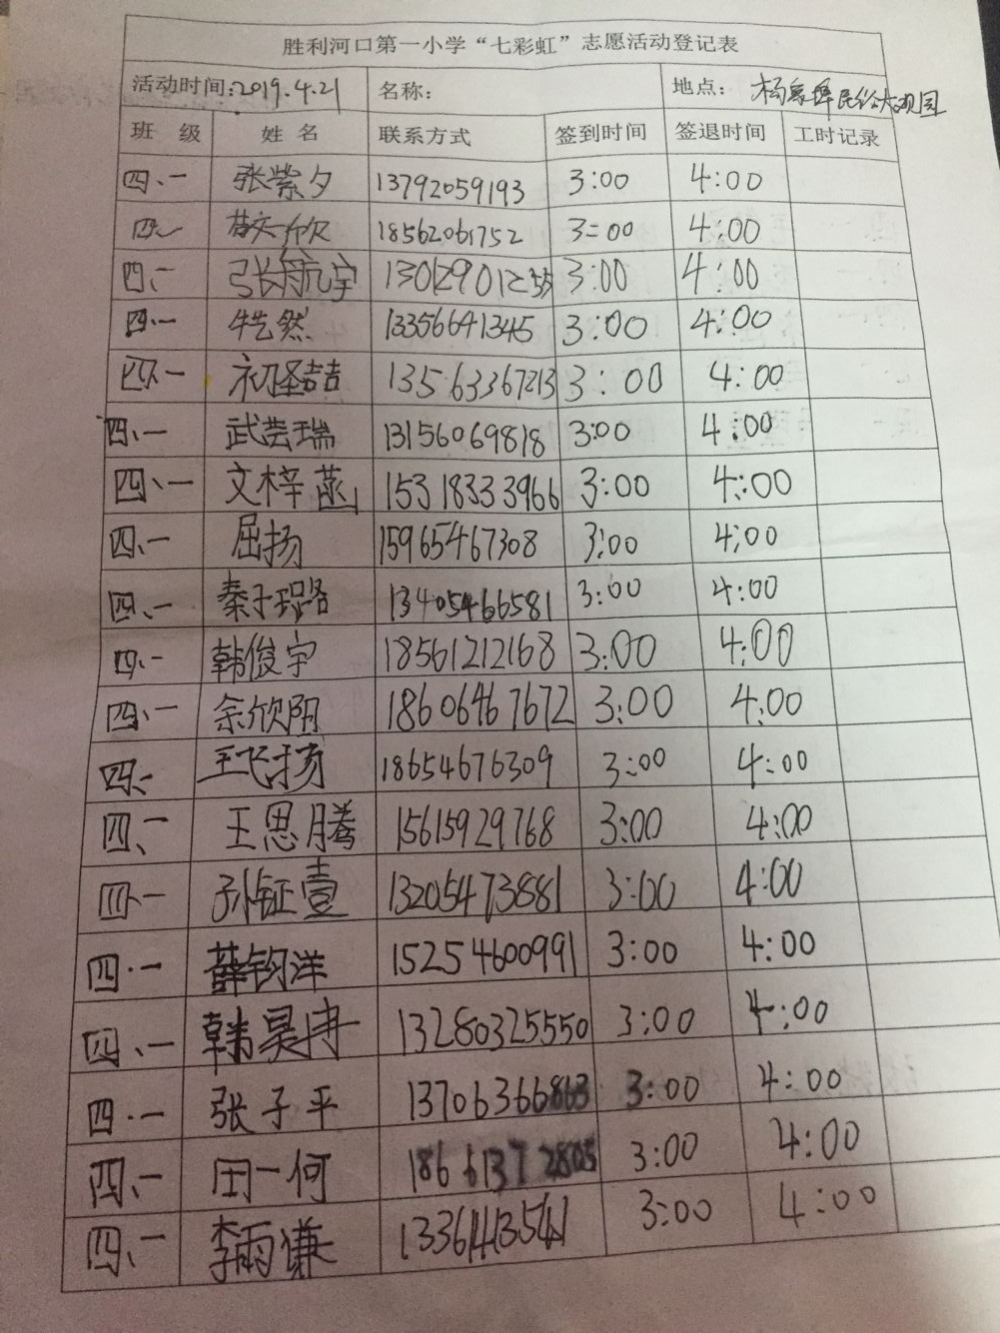 胜利河口第一小学“七彩虹”志愿活动登记表
活动时间:2019.4.21 名称: 地点: 杨家埠民俗大观园
班 级 姓 名 联系方式 签到时间 签退时间 工时记录
四、一 张紫夕 13792059193 3:00 4:00
四、一 18562061752 3:00 4:00
四、一 张航宇 3:00 4:00
四、一 然 13356641345 3:00 4:00
四、一 初圣喆 13563367213 3:00 4:00
四、一 武芸瑞 13156069818 3:00 4:00
四、一 文梓菡 15318333966 3:00 4:00
四、一 屈扬 15965467308 3:00 4:00
四、一 秦子璐 13405466581 3:00 4:00
四、一 韩俊宇 18561212168 3:00 4:00
四、一 余欣阳 18606467672 3:00 4:00
四、一 王飞扬 18654676309 3:00 4:00
四、一 王思腾 15615929768 3:00 4:00
四、一 孙钲壹 13205473881 3:00 4:00
四·一 薛钧洋 15254600991 3:00 4:00
四、一 韩昊冉 13280325550 3:00 4:00
四·一 张子平 13706366863 3:00 4:00
四、一 田一何 3:00 4:00
四、一 李雨谦 3:00 4:00